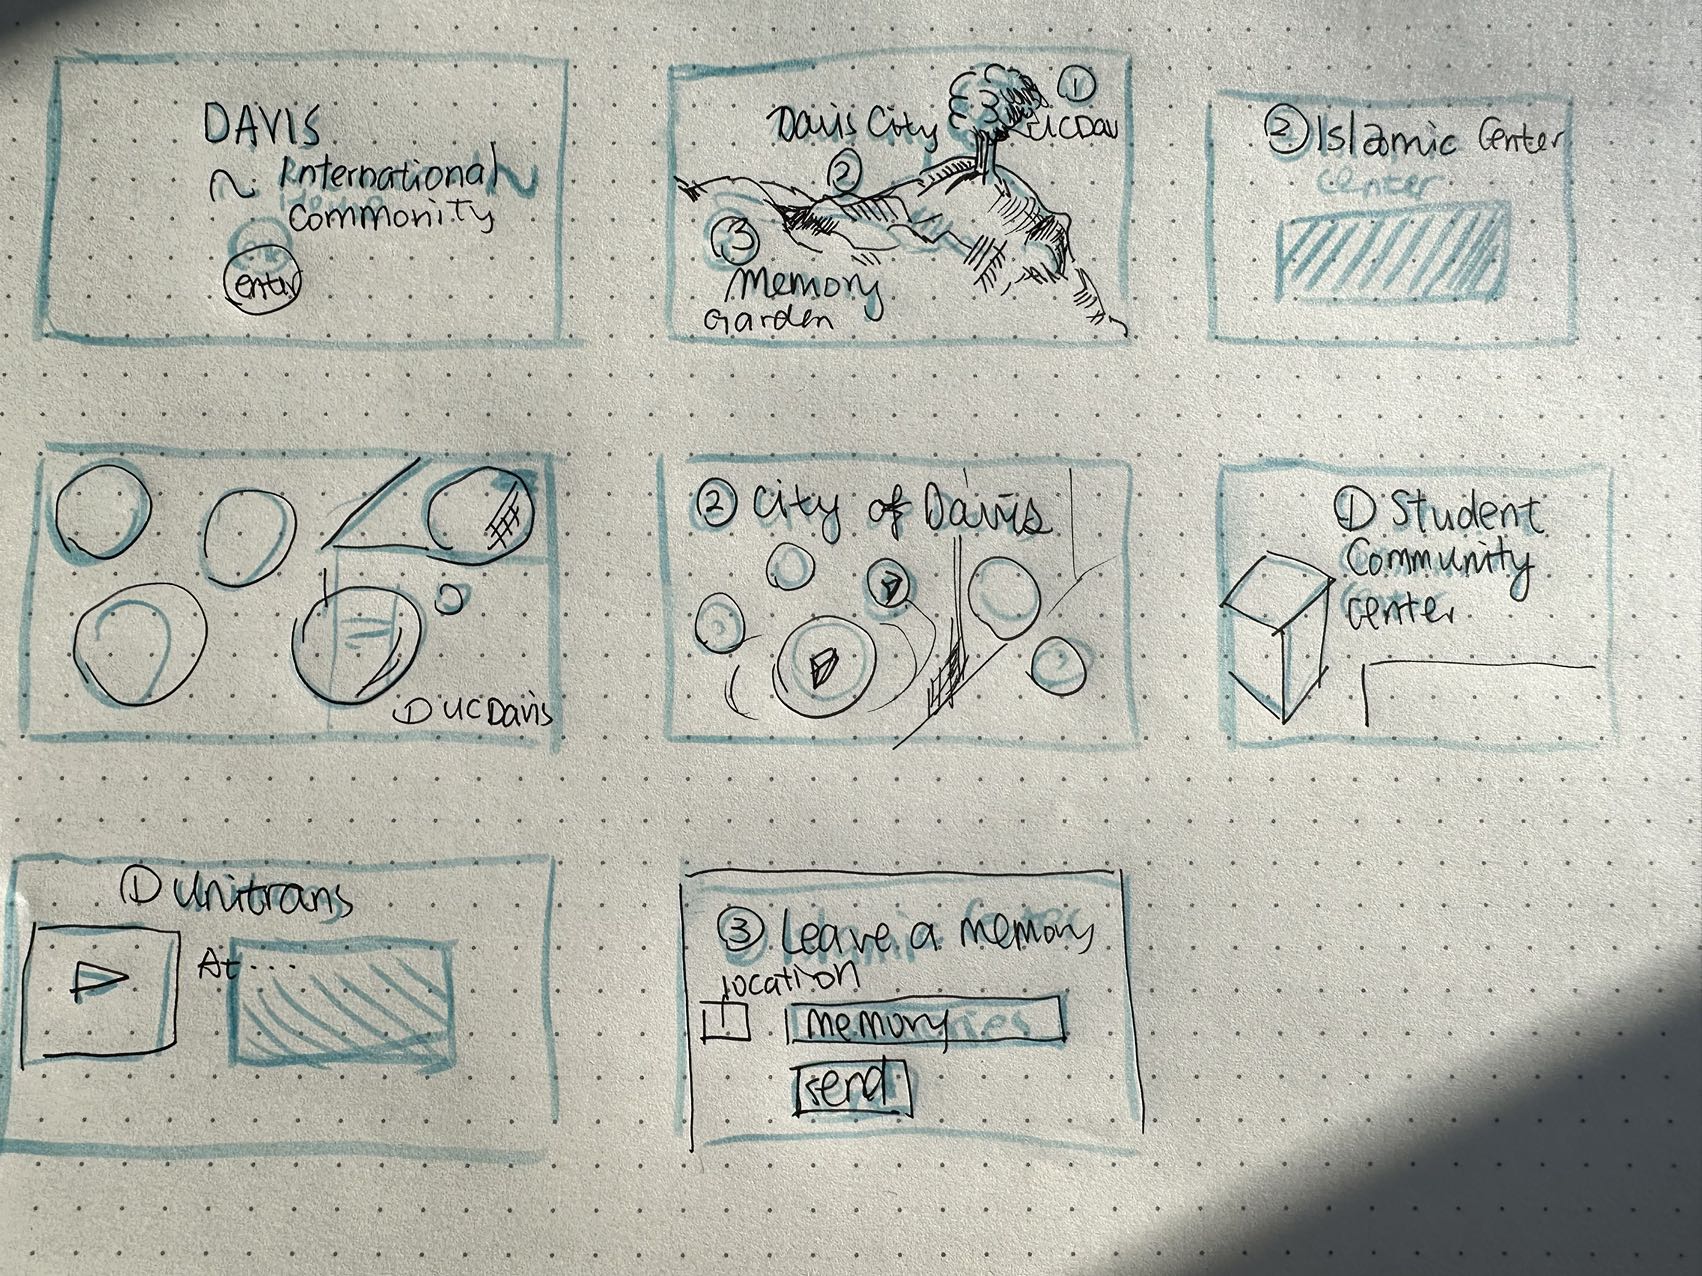 DAVIS
International
Commonity
enter
Davis City
①
UCDav
②
③
Memory
Garden
② Islamic Center
Center
① UCDavis
② City of Davis
① Student
Community
Center
① Unitrans
At...
③ Leave a memory
location
memory
send